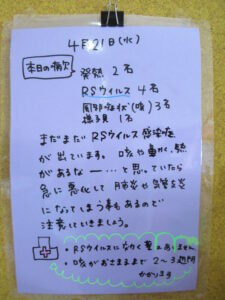 4月21日(水)
本日の病欠
発熱 2名
RSウイルス 4名
風邪症状(咳) 3名
1名
まだまだ RSウイルス感染症
が出ています。咳や鼻水、熱
があるなー…と思っていたら
急に悪化して 肺炎や気管支炎
になってしまう事もあるので
注意していきましょう。
・RSウイルスになく薬はありません
・咳がおさまるまで 2~3週間
かかります